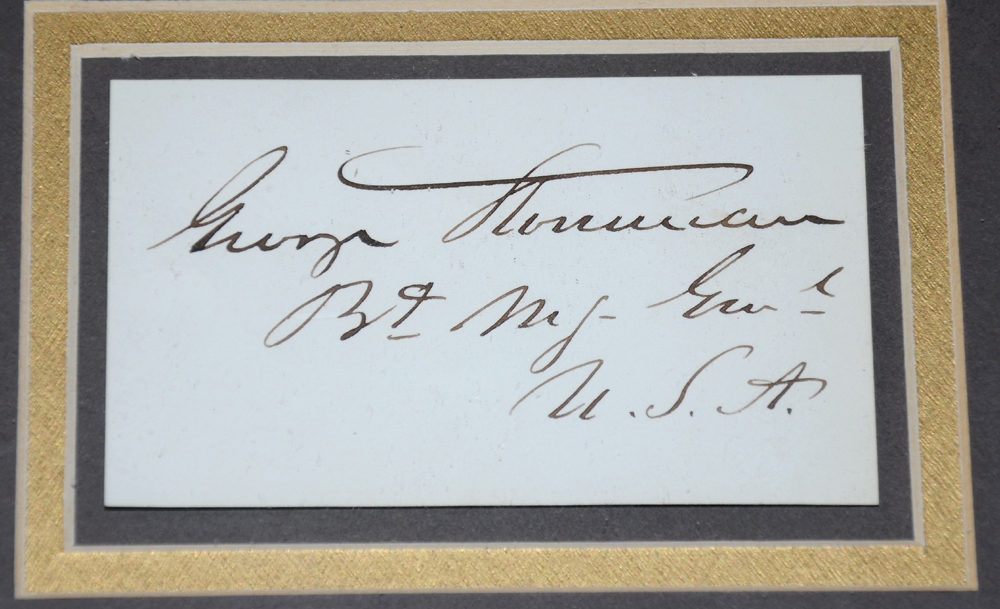 George Stoneman
Bt Mj Genl
U.S.A.